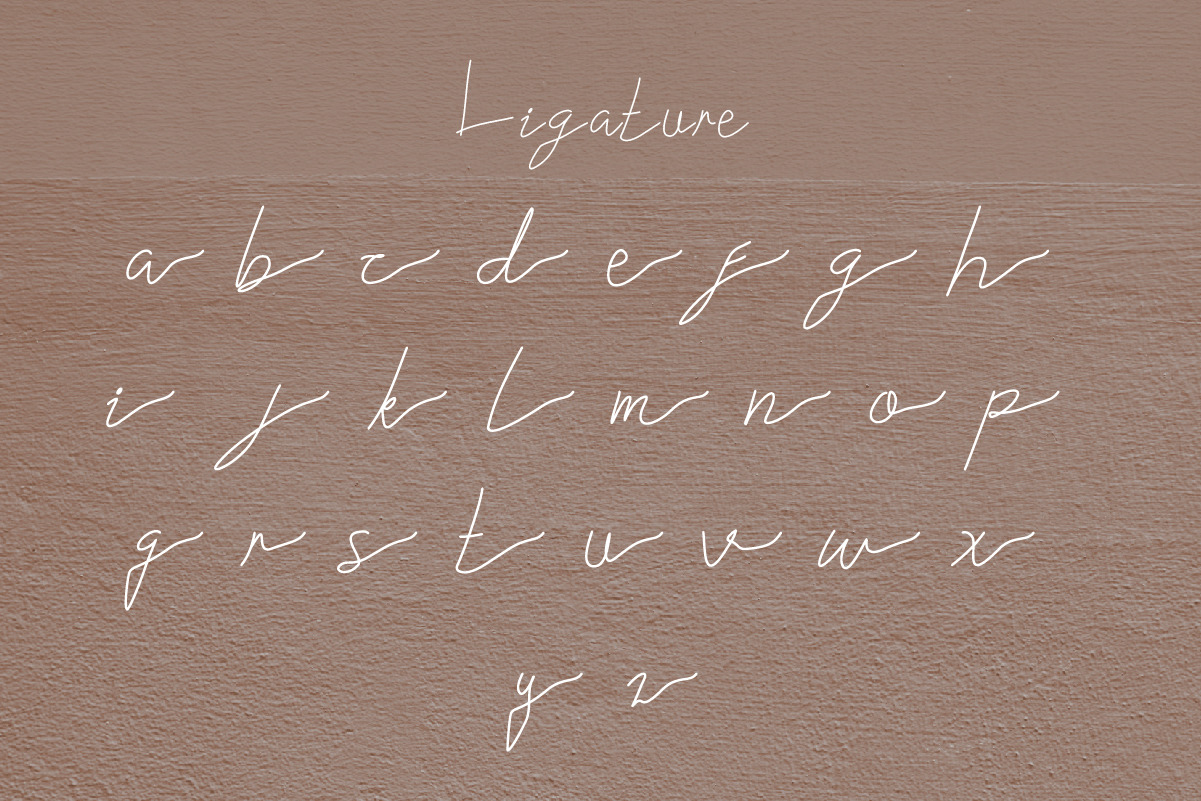 Ligature
a b c d e f g h
i j k l m n o p
q r s t u v w x
y z